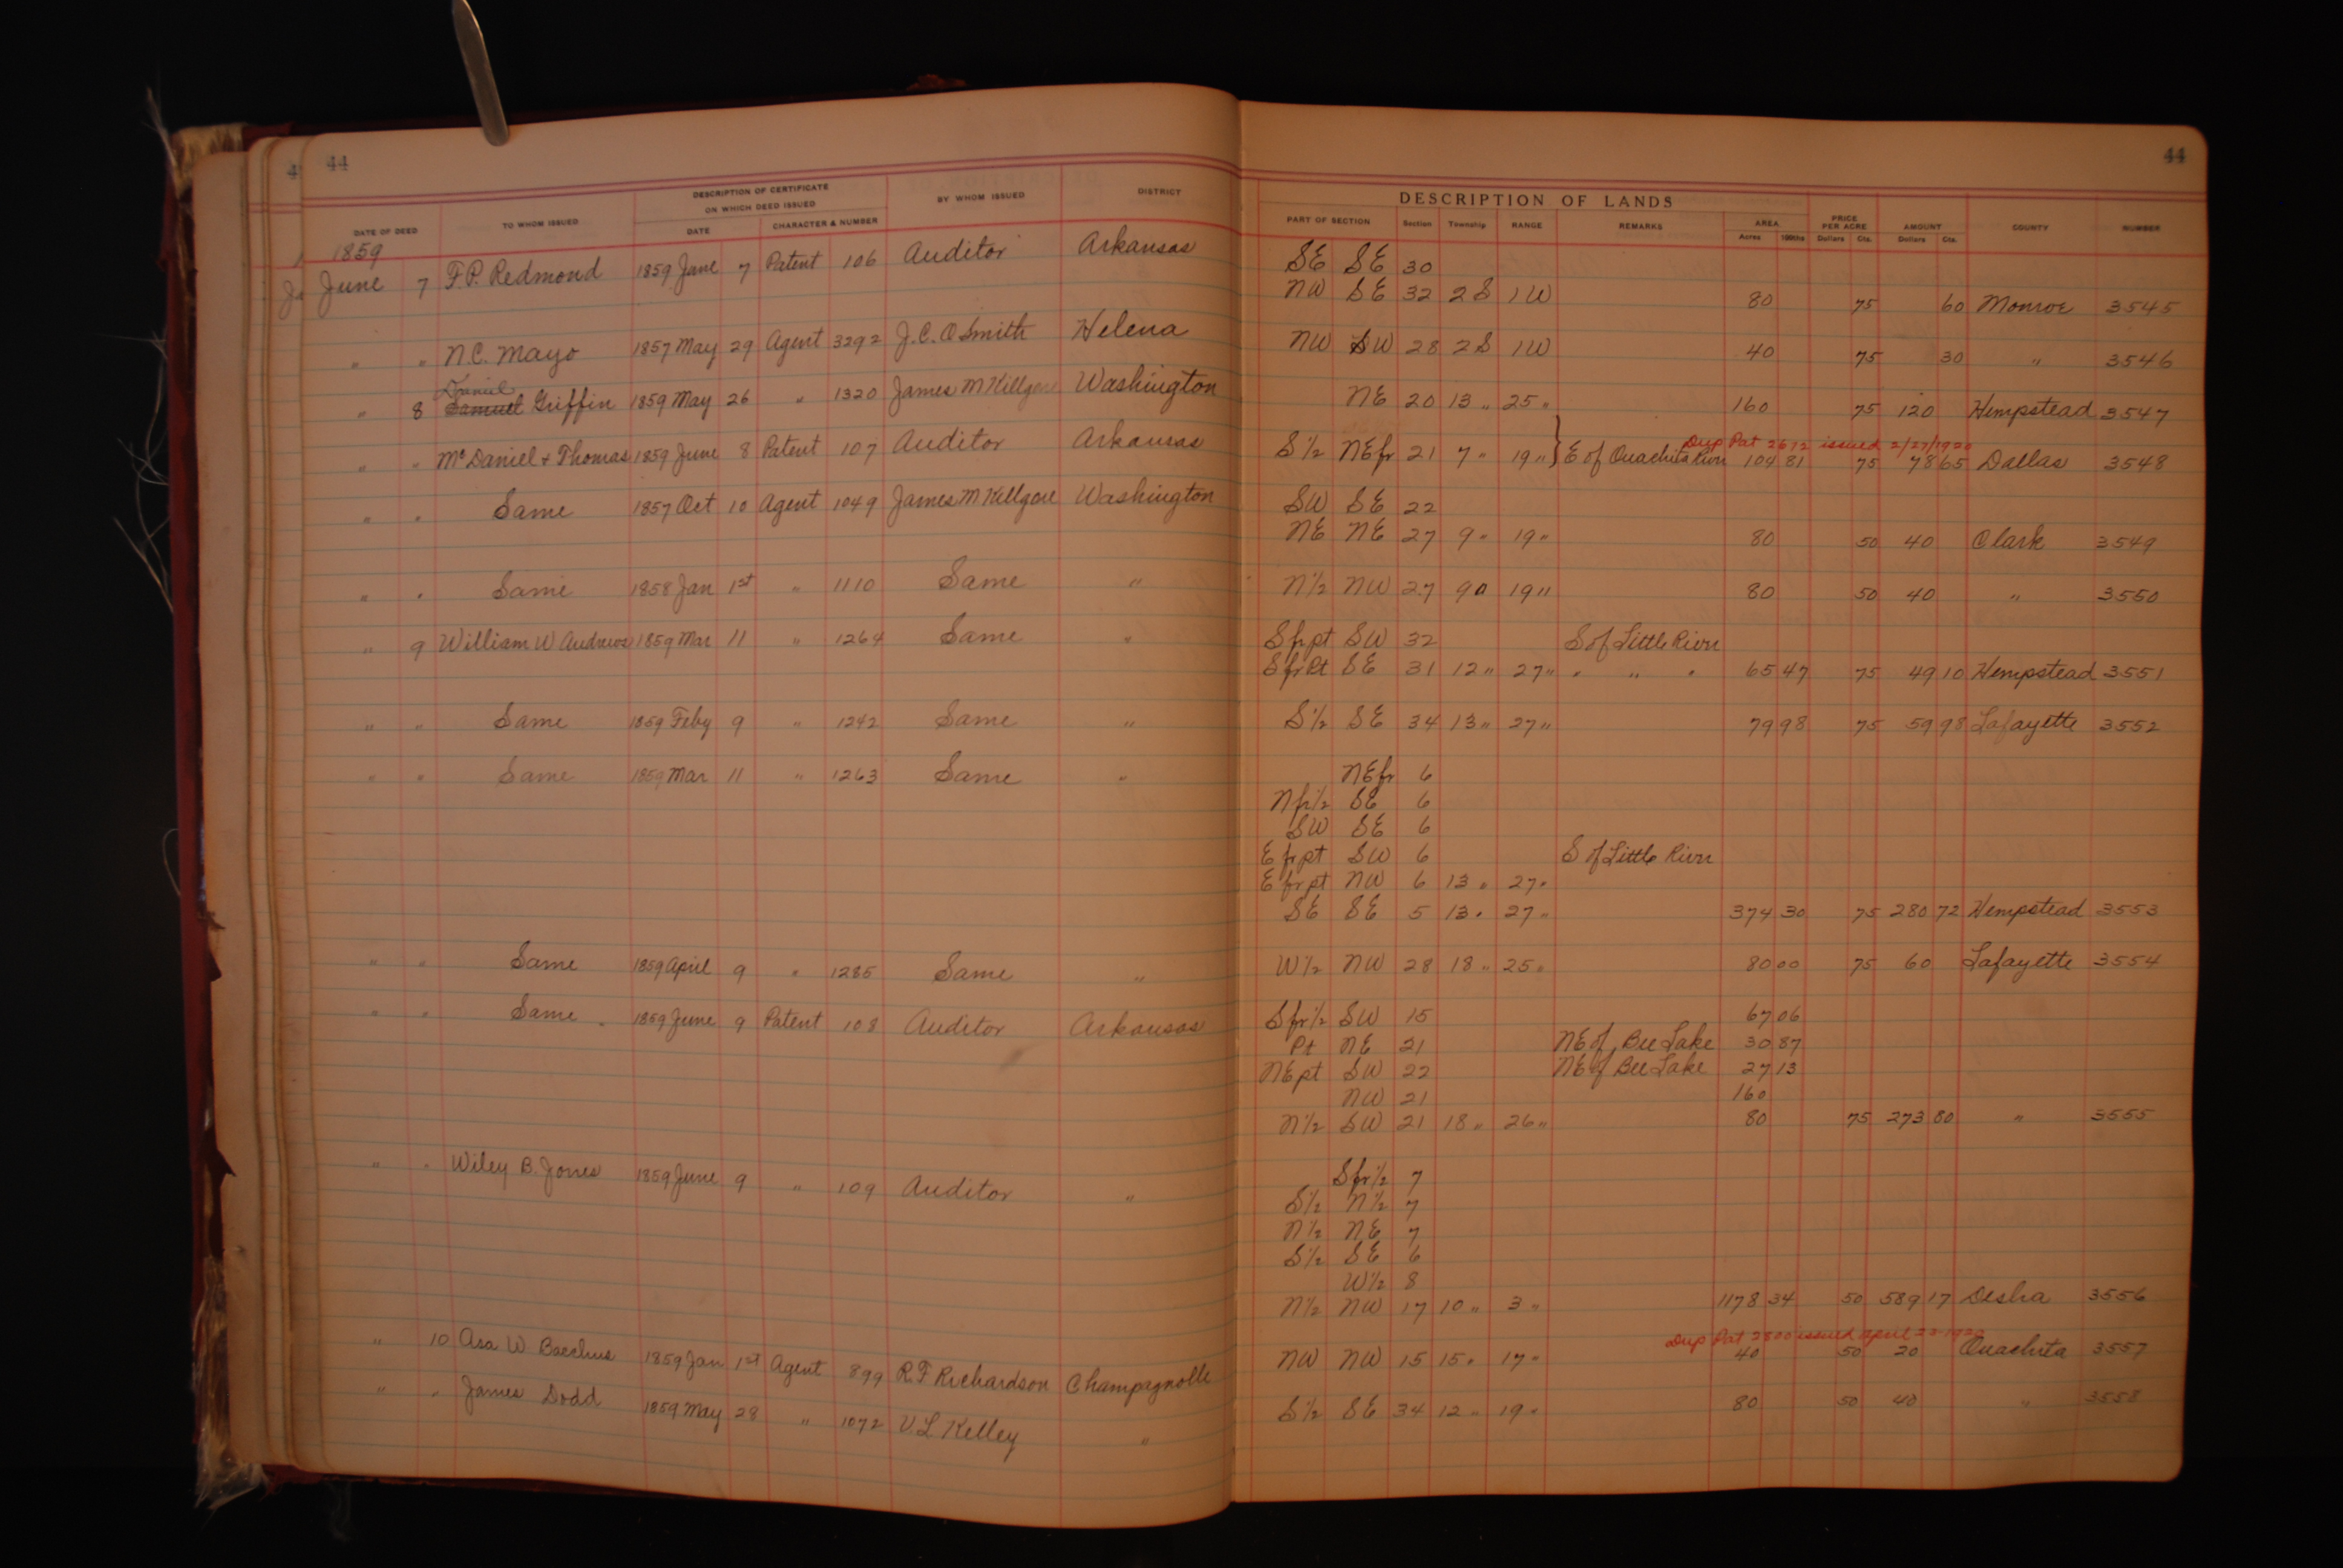 44 44
DESCRIPTION OF CERTIFICATE ON WHICH DEED ISSUED
DESCRIPTION OF LANDS
DATE OF DEED TO WHOM ISSUED DATE CHARACTER & NUMBER BY WHOM ISSUED DISTRICT PART OF SECTION Section Township RANGE REMARKS AREA Acres 100ths PRICE PER ACRE Dollars Cts. AMOUNT Dollars Cts. COUNTY NUMBER
1859
June 7 F.P. Redmond 1859 June 7 Patent 106 Auditor Arkansas SE SE 30
NW SE 32 2 S 1 W 80 75 60 Monroe 3545
" " N.C. Mayo 1857 May 29 Agent 3292 J.C.O Smith Helena NW SW 28 2 S 1 W 40 75 30 " 3546
Daniel
" 8 Samuel Griffin 1859 May 26 " 1320 James M Killgore Washington NE 20 13 " 25 " 160 75 120 Hempstead 3547
Dup Pat 2612 issued 2/27/1920
" " Mc Daniel & Thomas 1859 June 8 Patent 107 Auditor Arkansas S½ NEfr 21 7 " 19 " } E of Ouachita River 104 81 75 78 65 Dallas 3548
" " Same 1857 Oct 10 Agent 1049 James M Killgore Washington SW SE 22
NE NE 27 9 " 19 " 80 50 40 Clark 3549
" " Same 1858 Jan 1st " 1110 Same " N½ NW 27 9 " 19 " 80 50 40 " 3550
" 9 William W Andrews 1859 Mar 11 " 1264 Same " S fr pt SW 32 S of Little River
S fr Pt SE 31 12 " 27 " " " " 65 47 75 49 10 Hempstead 3551
" " Same 1859 Feby 9 " 1242 Same " S½ SE 34 13 " 27 " 79 98 75 59 98 Lafayette 3552
" " Same 1859 Mar 11 " 1263 Same " NEfr 6
N fr ½ SE 6
SW SE 6
E fr pt SW 6 S of Little River
E fr pt NW 6 13 " 27 "
SE SE 5 13 " 27 " 374 30 75 280 72 Hempstead 3553
" " Same 1859 April 9 " 1285 Same " W½ NW 28 18 " 25 " 80 00 75 60 Lafayette 3554
" " Same 1859 June 9 Patent 108 Auditor Arkansas S fr ½ SW 15 67 06
Pt NE 21 NE of Bee Lake 30 87
NE pt SW 22 NE of Bee Lake 27 13
NW 21 160
N½ SW 21 18 " 26 " 80 75 273 80 " 3555
" " Wiley B. Jones 1859 June 9 " 109 Auditor " S fr ½ 7
S½ N½ 7
N½ NE 7
S½ SE 6
W½ 8
N½ NW 17 10 " 3 " 1178 34 50 589 17 Desha 3556
Dup Pat 2800 issued April
" 10 Asa W Bacchus 1859 Jan 1st Agent 899 R.F Richardson Champagnolle NW NW 15 15 " 17 " 40 50 20 Ouachita 3557
" " James Dodd 1859 May 28 " 1072 V.L Kelley " S½ SE 34 12 " 19 " 80 50 40 " 3558